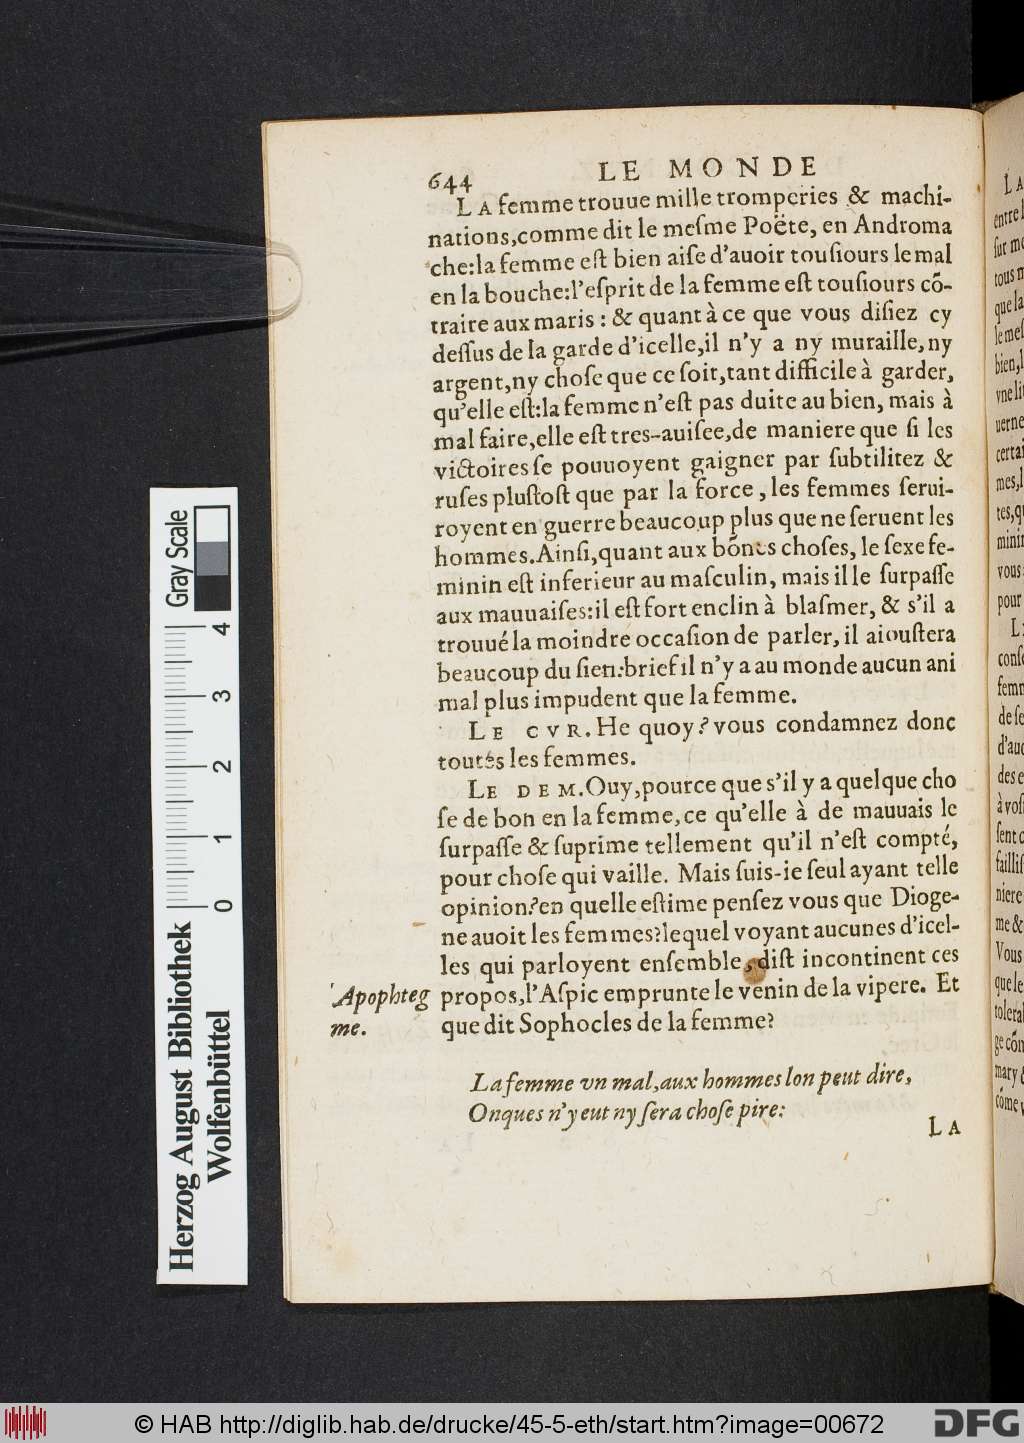 644 LE MONDE
LA femme trouue mille tromperies & machi-
nations,comme dit le meſme Poëte, en Androma
che:la femme eſt bien aiſe d'auoir touſiours le mal
en la bouche:l'eſprit de la femme eſt touſiours cō-
traire aux maris : & quant à ce que vous diſiez cy
deſſus de la garde d'icelle,il n'y a ny muraille, ny
argent,ny choſe que ce ſoit,tant difficile à garder,
qu'elle eſt:la femme n'eſt pas duite au bien, mais à
mal faire,elle eſt tres-auiſee,de maniere que ſi les
victoires ſe pouuoyent gaigner par ſubtilitez &
ruſes pluſtoſt que par la force , les femmes ſerui-
royent en guerre beaucoup plus que ne ſeruent les
hommes.Ainſi,quant aux bōnes choſes, le ſexe fe-
minin eſt inferieur au maſculin, mais il le ſurpaſſe
aux mauuaiſes:il eſt fort enclin à blaſmer, & s'il a
trouué la moindre occaſion de parler, il aiouſtera
beaucoup du ſien:brief il n'y a au monde aucun ani
mal plus impudent que la femme.
LE CVR. He quoy? vous condamnez donc
toutes les femmes.
LE DEM. Ouy,pource que s'il y a quelque cho
ſe de bon en la femme, ce qu'elle à de mauuais le
ſurpaſſe & ſuprime tellement qu'il n'eſt compté,
pour choſe qui vaille. Mais ſuis-ie ſeul ayant telle
opinion?en quelle eſtime penſez vous que Dioge-
ne auoit les femmes?lequel voyant aucunes d'icel-
les qui parloyent enſemble, diſt incontinent ces
propos,l'Aſpic emprunte le venin de la vipere. Et
que dit Sophocles de la femme?
Apophteg
me.
La femme vn mal,aux hommes lon peut dire,
Onques n'y eut ny ſera choſe pire:
LA
LA
entre
ſur
tous
que la
bien,
certai
mes,
minin
vous
pour
femm
de ſe
d'auo
des
niere
me &
Vous
que le
mary
côme
Gray Scale
0 1 2 3 4
Herzog August Bibliothek
Wolfenbüttel
© HAB http://diglib.hab.de/drucke/45-5-eth/start.htm?image=00672
DFG